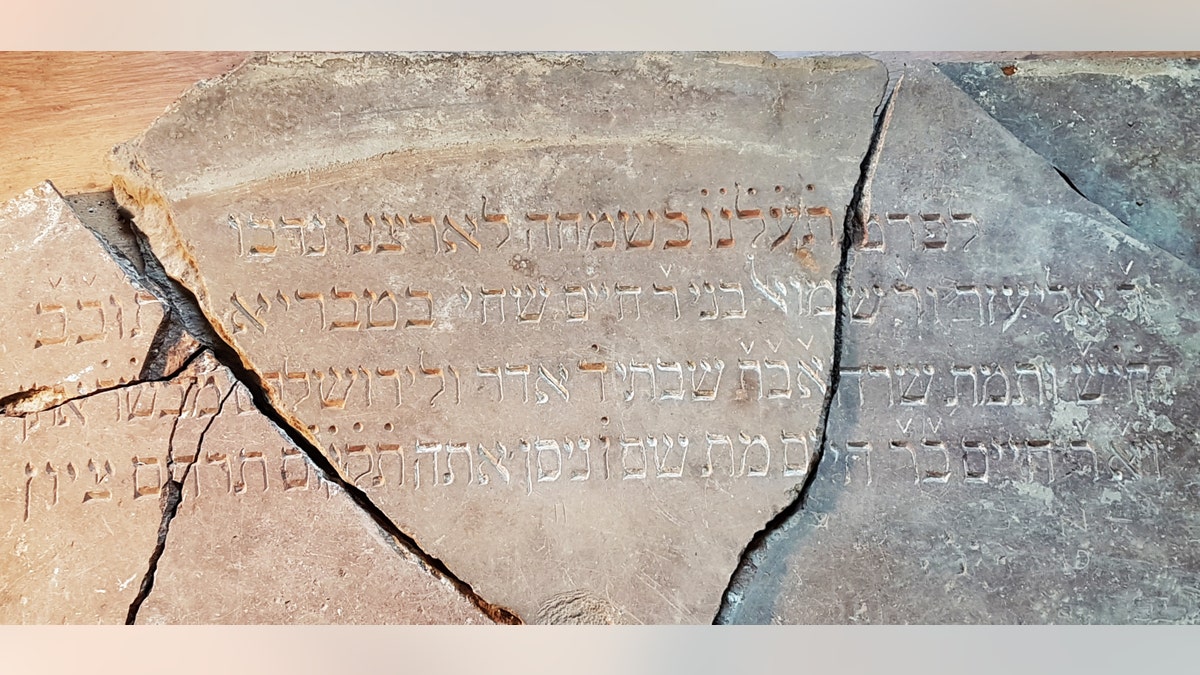 לפרט תעלנו בשמחה לארצנו נדבו
ר אליעזר ור שמואל בני ר חיים שחי בטבריא תובב
ותמת שרה שבת יד אדר ולירושלם
חיים בר חיים מת שם ו ניסן אתה תקום תרחם ציון